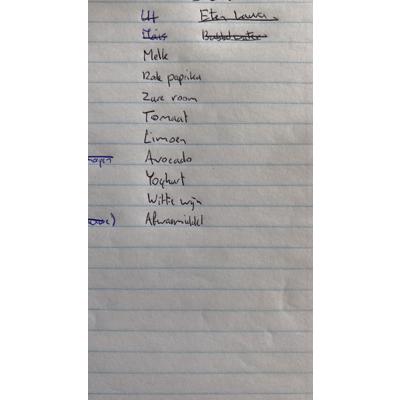 Ui Eten Laura
Mais Bubbelwater
Melk
Rode paprika
Zure room
Tomaat
Limoen
Avocado
Yoghurt
Witte wijn
Afwasmiddel